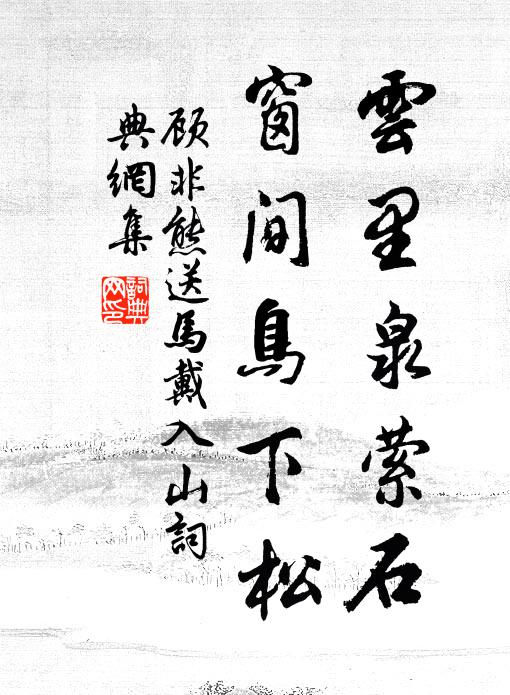 雲里泉萦石
窗间鳥下松
顾非熊送馬戴入山詞
典網集
詞典
网印